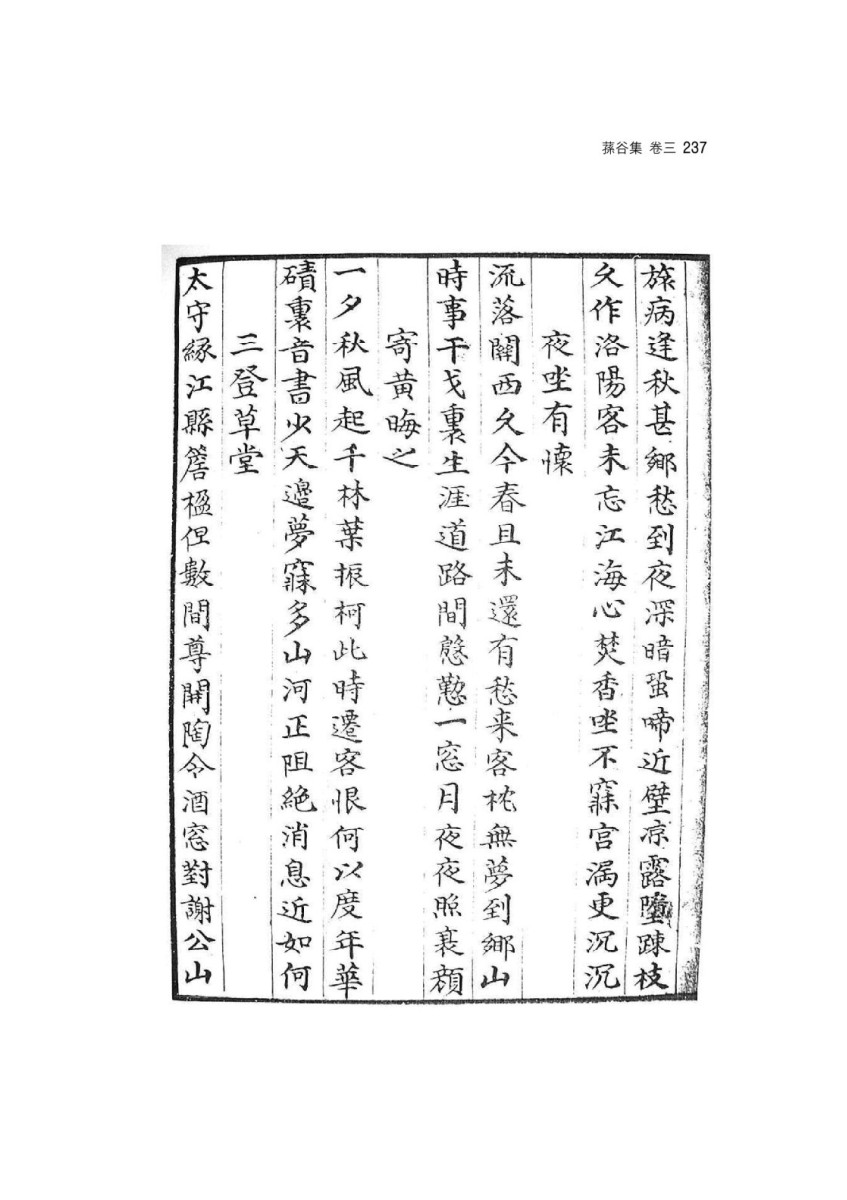 蓀谷集 卷三 237
旅病逢秋甚鄉愁到夜深暗蛩啼近壁凉露墮踈枝
久作洛陽客未忘江海心焚香坐不寐宮漏更沉沉
夜坐有懷
流落關西久今春且未還有愁来客枕無夢到鄉山
時事干戈裏生涯道路間慇懃一窓月夜夜照衰顔
寄黃晦之
一夕秋風起千林葉振柯此時遷客恨何以度年華
磧裏音書少天邊夢寐多山河正阻絶消息近如何
三登草堂
太守緣江縣簷楹但數間尊開陶令酒窓對謝公山